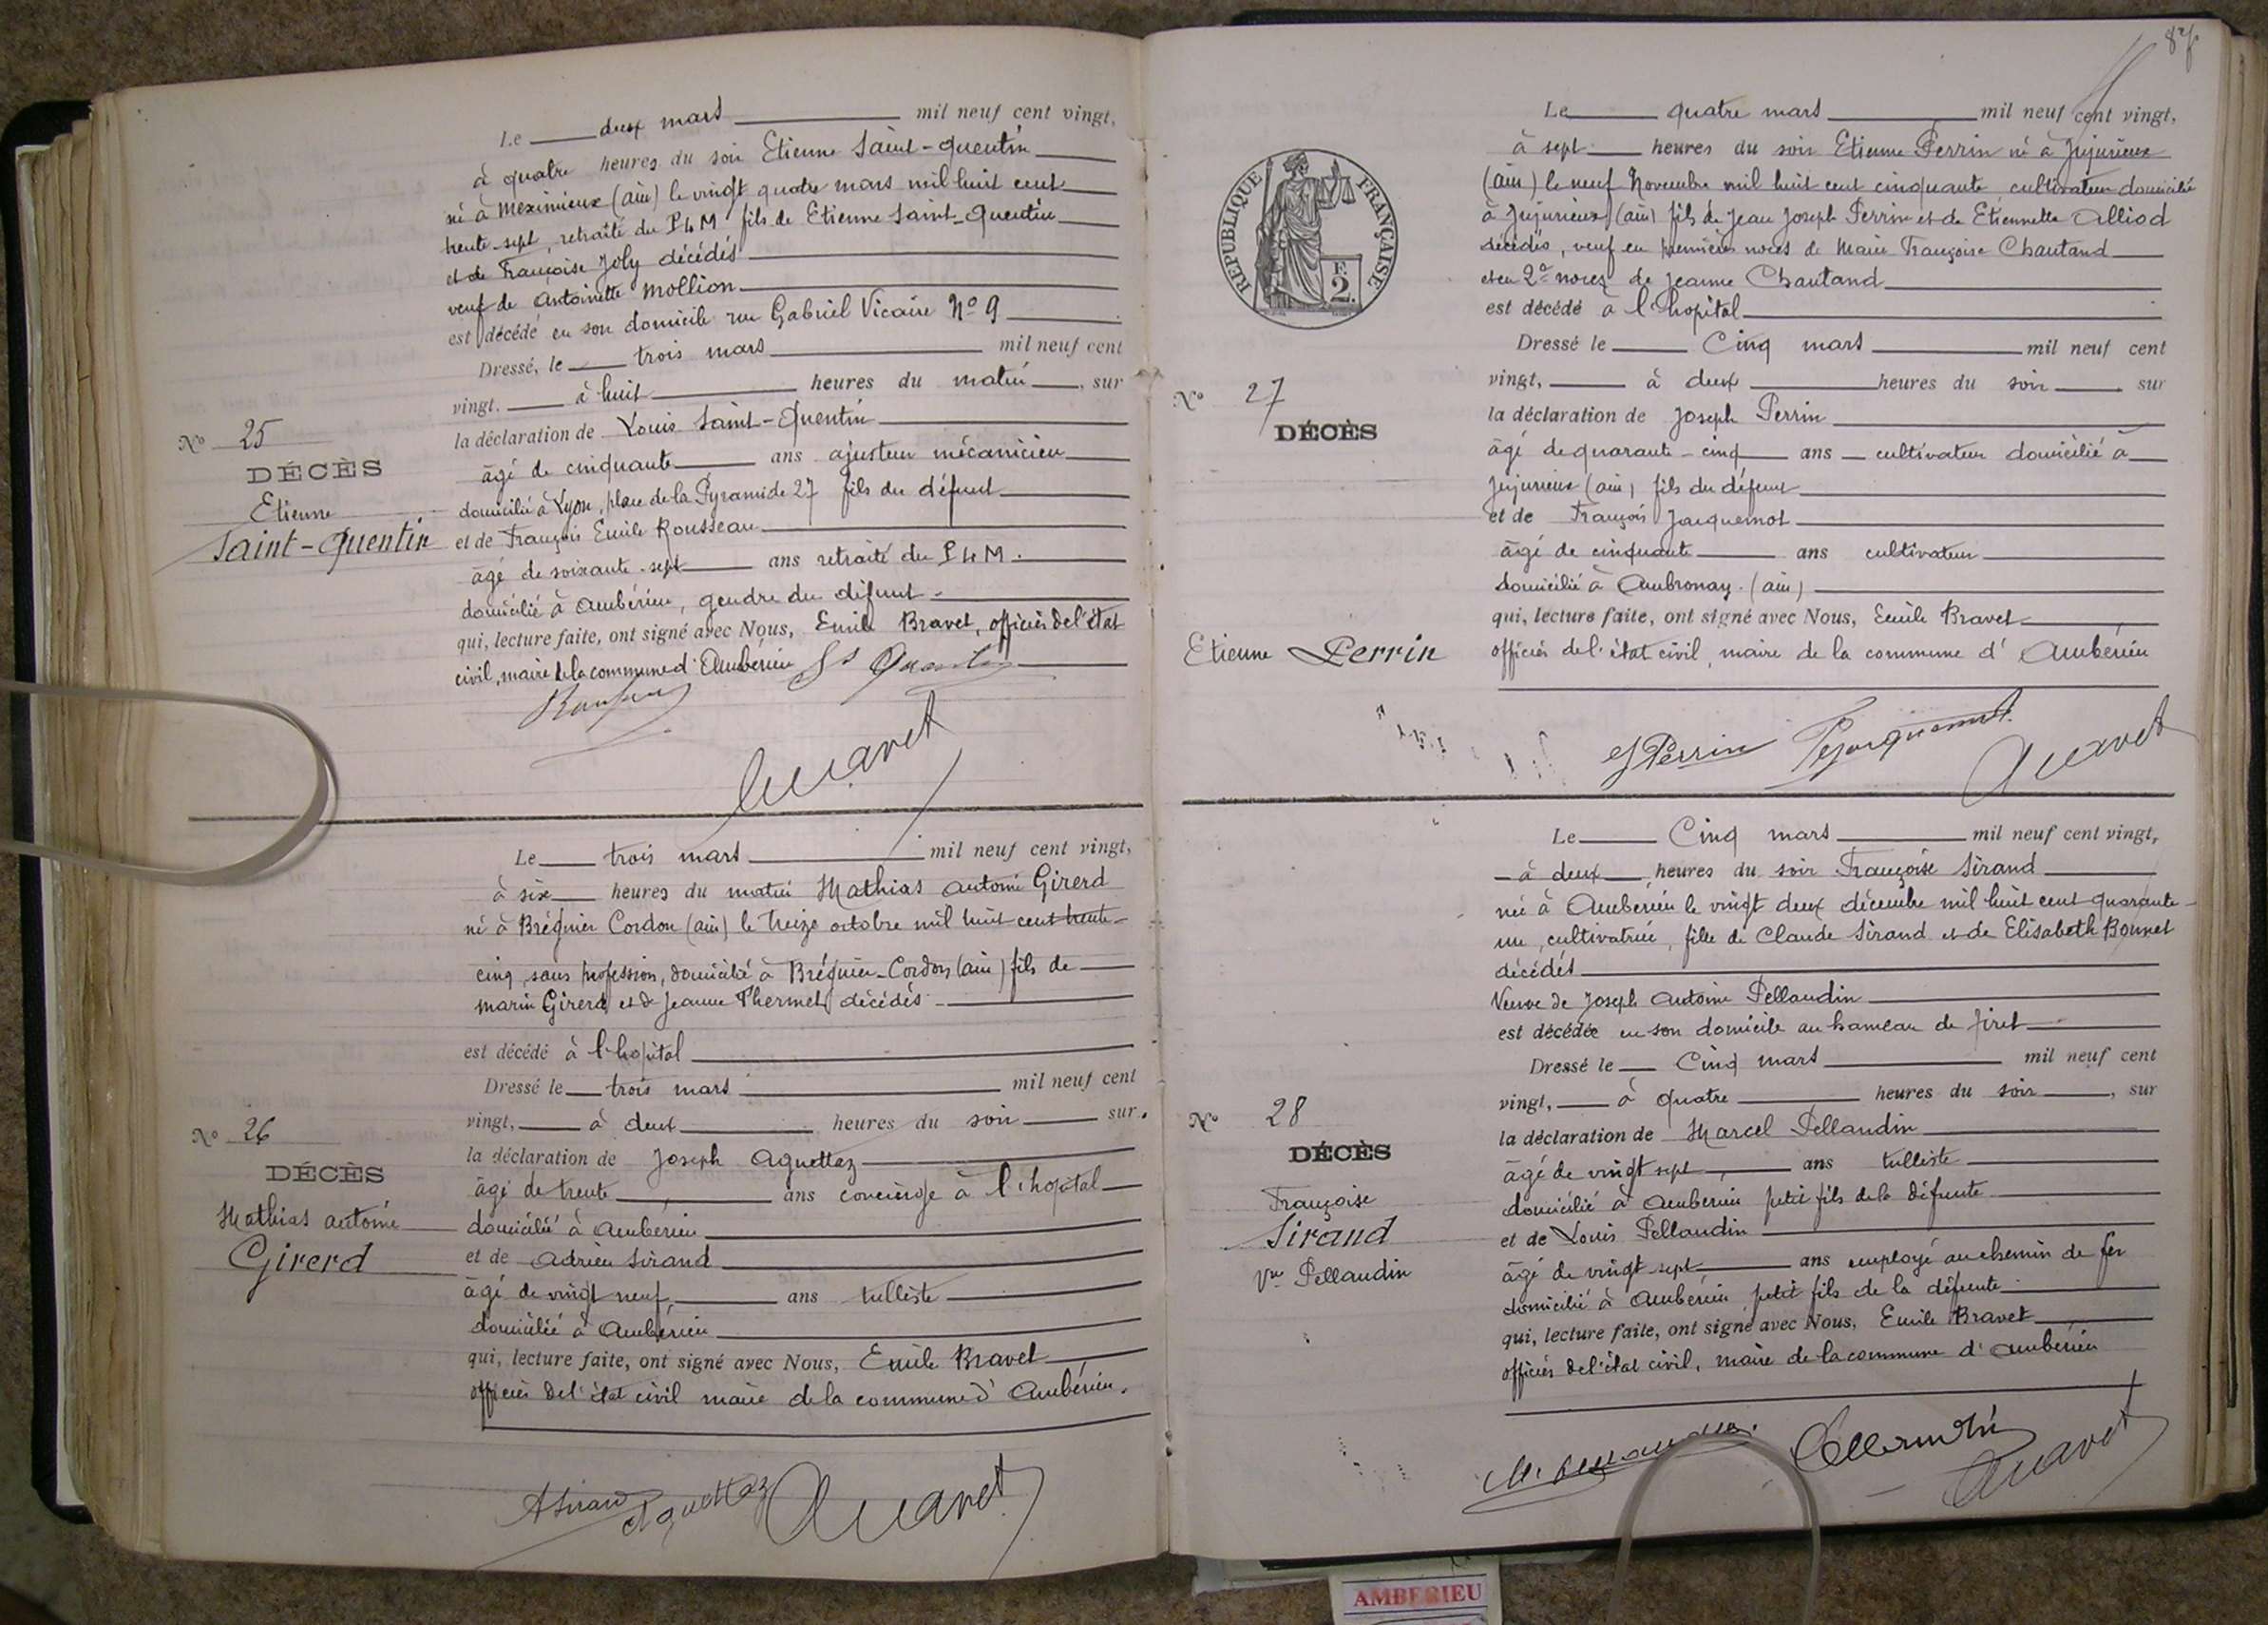 Le deux mars mil neuf cent vingt,
à quatre heures du soir Etienne Saint-Quentin
né à Meximieux (ain) le vingt quatre mars mil huit cent
trente-sept, retraité du PLM fils de Etienne Saint-Quentin
et de Françoise Joly décédés
veuf de Antoinette Mollion
est décédé en son domicile rue Gabriel Vicaire No 9
Dressé, le trois mars mil neuf cent
vingt. à huit heures du matin, sur
la déclaration de Louis Saint-Quentin
âgé de cinquante ans ajusteur mécanicien
domicilié à Lyon, place de la Pyramide 27 fils du défunt
et de François Emile Rousseau
âgé de soixante-sept ans retraité du PLM.
domicilié à Ambérieu, gendre du défunt
qui, lecture faite, ont signé avec Nous, Emile Bravet, officier de l'état
civil, maire de la commune d'Ambérieu St Quentin
No 25
DÉCÈS
Etienne
Saint-Quentin
Le trois mars mil neuf cent vingt,
à six heures du matin Mathias Antoine Girerd
né à Brégnier Cordon (ain) le treize octobre mil huit cent trente-
cinq, sans profession, domicilié à Brégnier-Cordon (ain) fils de
Marin Girerd et de Jeanne Thermet décédés
est décédé à l'hopital
Dressé le trois mars mil neuf cent
vingt, à deux heures du soir sur.
la déclaration de Joseph Aguettaz
âgé de trente ans concierge à l'hopital
domicilié à Ambérieu
et de Adrien Sirand
âgé de vingt neuf ans tulliste
domicilié à Ambérieu
qui, lecture faite, ont signé avec Nous, Emile Bravet
officier de l'état civil maire de la commune d'Ambérieu.
No 26
DÉCÈS
Mathias Antoine
Girerd
A Sirand Aguettaz Bravet
87
RÉPUBLIQUE FRANÇAISE
F.
2.
Le quatre mars mil neuf cent vingt,
à sept heures du soir Etienne Perrin né à Jujurieux
(ain) le neuf Novembre mil huit cent cinquante cultivateur domicilié
à Jujurieux (ain) fils de Jean Joseph Perrin et de Etiennette Alliod
décédés, veuf en premières noces de Marie Françoise Chautand
et en 2e noces de Jeanne Chautand
est décédé à l'hopital
Dressé le Cinq mars mil neuf cent
vingt, à deux heures du soir sur
la déclaration de Joseph Perrin
âgé de quarante-cinq ans cultivateur domicilié à
Jujurieux (ain) fils du défunt
et de François Jacquemot
âgé de cinquante ans cultivateur
domicilié à Ambronay (ain)
qui, lecture faite, ont signé avec Nous, Emile Bravet
officier de l'état civil, maire de la commune d'Ambérieu
No 27
DÉCÈS
Etienne Perrin
J Perrin Bravet
Le Cinq mars mil neuf cent vingt,
à deux heures du soir Françoise Sirand
née à Ambérieu le vingt deux décembre mil huit cent quarante-
un, cultivatrice, fille de Claude Sirand et de Elisabeth Bonnet
décédés
Veuve de Joseph Antoine Pellaudin
est décédée en son domicile au hameau de Tiret
Dressé le Cinq mars mil neuf cent
vingt, à quatre heures du soir, sur
la déclaration de Marcel Pellaudin
âgé de vingt sept ans tulliste
domicilié à Ambérieu petit fils de la défunte
et de Louis Pellaudin
âgé de vingt sept ans employé au chemin de fer
domicilié à Ambérieu petit fils de la défunte
qui, lecture faite, ont signé avec Nous, Emile Bravet
officier de l'état civil, maire de la commune d'Ambérieu
No 28
DÉCÈS
Françoise
Sirand
Vve Pellaudin
AMBERIEU